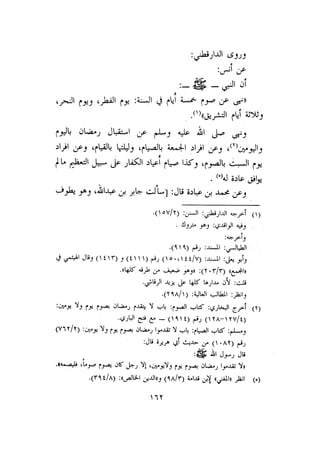 وروى الدارقطني:
عن أنس:
أن النبي ـ ﷺ ـ:
«نهى عن صوم خمسة أيام في السنة: يوم الفطر، ويوم النحر،
وثلاثة أيام التشريق»(١).
ونهى صلى الله عليه وسلم عن استقبال رمضان باليوم
واليومين(٢)، وعن افراد الجمعة بالصيام، وليلتها بالقيام، وعن افراد
يوم السبت بالصوم، وكذا صيام أعياد الكفار على سبيل التعظيم مالم
يوافق عادة له(٥).
وعن محمد بن عبادة قال: [سألت جابر بن عبدالله، وهو يطوف
(١) أخرجه الدارقطني: السنن: (١٥٧/٢).
وفيه الواقدي: وهو متروك.
وأخرجه:
الطيالسي: المسند: رقم (٩١٩).
وأبو يعلى: المسند: (١٤٤/٧، ١٥٠) رقم (٤١١١) و (١٤١٣) وقال الهيثمي في
«المجمع» (٢٠٣/٣): «وهو ضعيف من طرقه كلها».
قلت: لأن مدارها كلها على يزيد الرقاشي.
وانظر: المطالب العالية: (٢٩٨/١).
(٢) أخرج البخاري: كتاب الصوم: باب لا يتقدم رمضان بصوم يوم ولا يومين:
(١٢٧/٤-١٢٨) رقم (١٩١٤) ـ مع فتح الباري.
ومسلم: كتاب الصيام: باب لا تقدموا رمضان بصوم يوم ولا يومين: (٧٦٢/٢)
رقم (١٠٨٢) من حديث أبي هريرة قال:
قال رسول الله ﷺ:
«لا تقدموا رمضان بصوم يوم ولايومين، إلا رجل كان يصوم صوماً، فليصمه».
(٥) انظر «المغني» لابن قدامة (٩٨/٣) و«الدين الخالص»: (٣٩٤/٨).
١٦٢